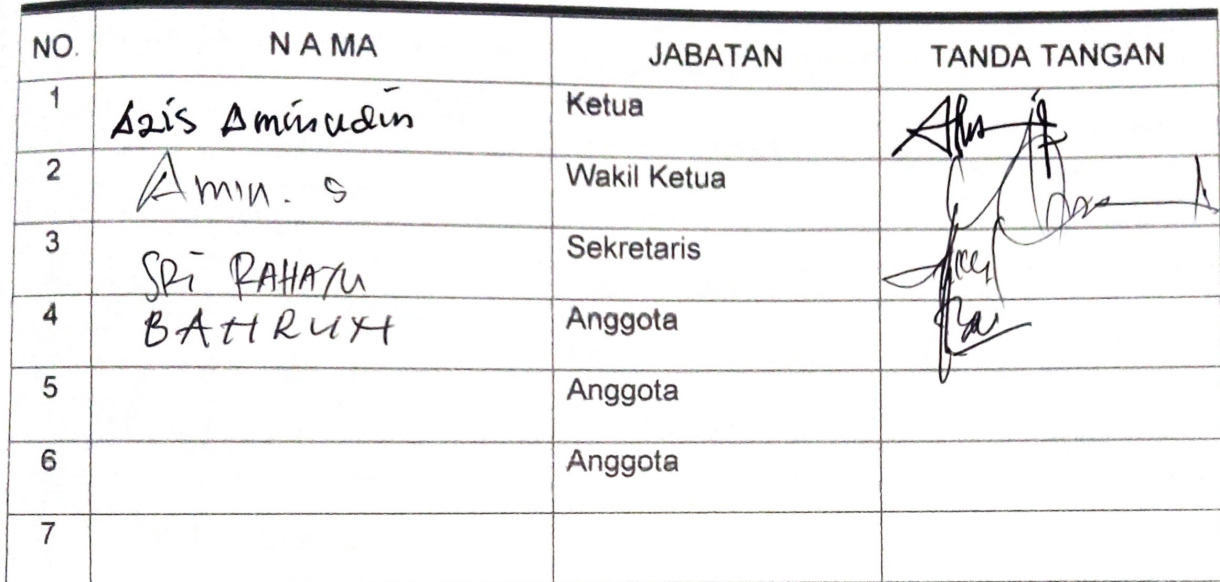 NO. N A M A JABATAN TANDA TANGAN
1 Azis Aminudin Ketua
2 Amin. S Wakil Ketua
3 SRi RAHAYU Sekretaris
4 BAHRUH Anggota
5 Anggota
6 Anggota
7